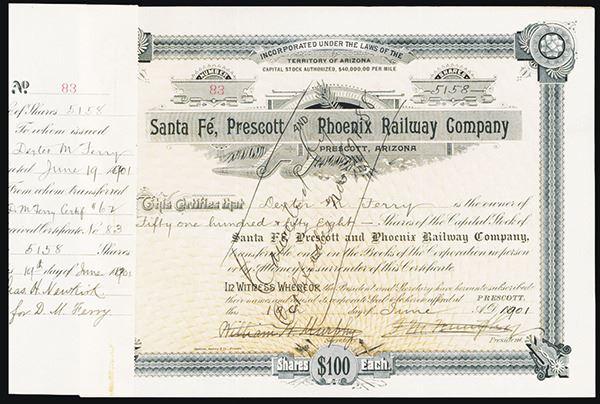 No 83
of Shares 5158
To whom issued
Dexter M Ferry
June 19 1901
From whom transferred
D. M. Ferry Certif. #62
Received Certificate No 83
5158 Shares
19th day of June 1901
Chas. A. Newkirk
for D. M. Ferry
INCORPORATED UNDER THE LAWS OF THE
TERRITORY OF ARIZONA
CAPITAL STOCK AUTHORIZED, $40,000.00 PER MILE
NUMBER
83
SHARES
5158
Santa Fé, Prescott AND Phoenix Railway Company
PRESCOTT, ARIZONA
This Certifies that Dexter M Ferry is the owner of
Fifty one hundred & fifty eight Shares of the Capital Stock of
Santa Fé Prescott and Phoenix Railway Company,
transferable only on the Books of the Corporation in person
or by Attorney on surrender of this Certificate
IN WITNESS WHEREOF the President and Secretary have hereunto subscribed
their names and corporate Seal to be hereon affixed at PRESCOTT.
this day of June A.D. 1901
William A. Murphy
Secretary
President
Shares $100 Each.